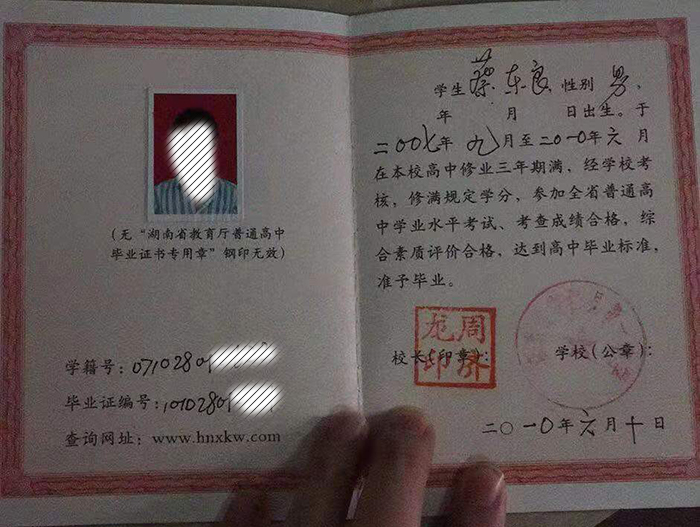 (无“湖南省教育厅普通高中
毕业证书专用章”钢印无效)
学籍号:0710280
毕业证编号:1010280
查询网址:www.hnxkw.com
学生 蔡东良 性别 男,
年 月 日出生。于
二00七年 九月至二0一0年六月
在本校高中修业三年期满,经学校考
核,修满规定学分,参加全省普通高
中学业水平考试、考查成绩合格,综
合素质评价合格,达到高中毕业标准,
准予毕业。
校长(印章): 学校(公章):
二〇一0年六月十日